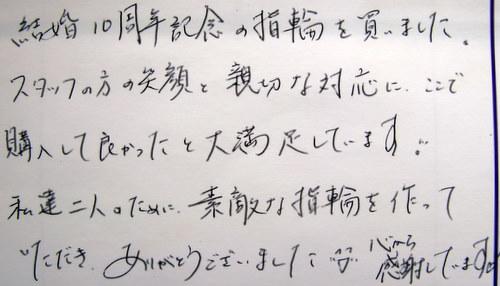 結婚10周年記念の指輪を買いました。
スタッフの方の笑顔と親切な対応に、ここで
購入して良かったと大満足しています。
私達二人のために、素敵な指輪を作って
いただき、ありがとうございました 心から
感謝しています。